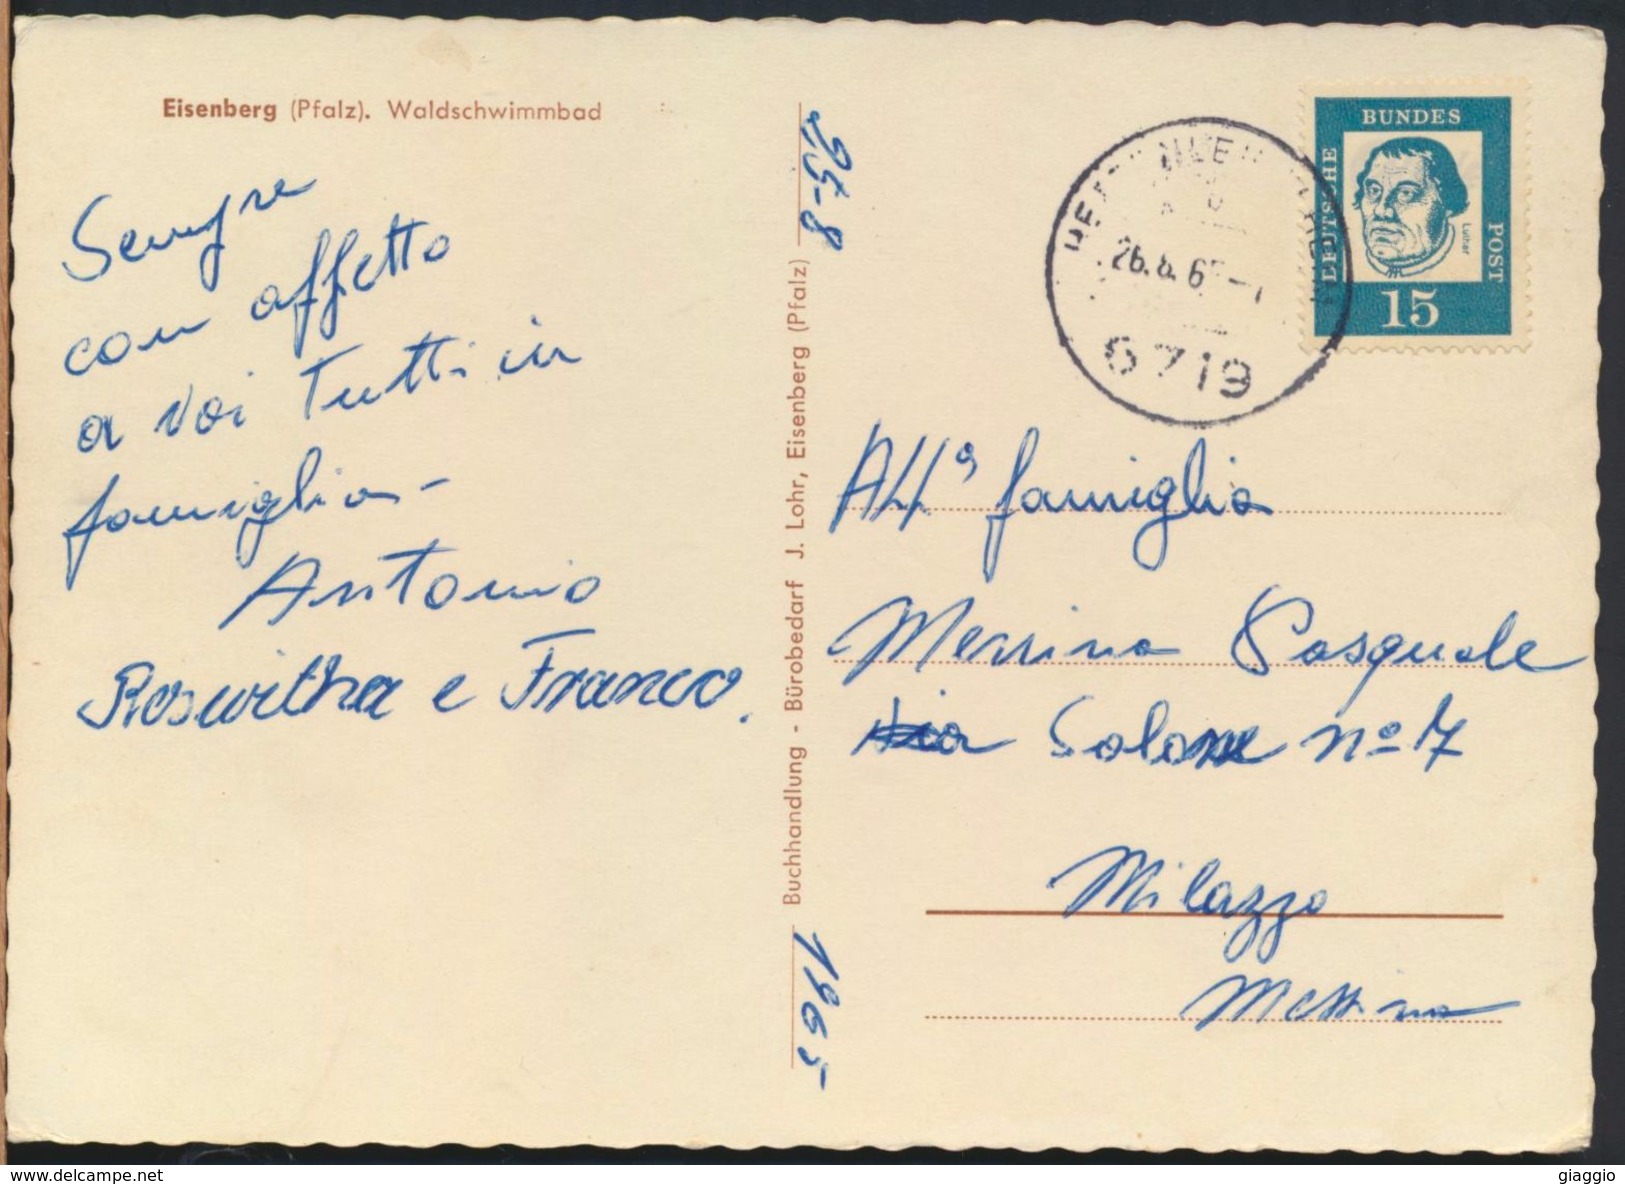 Eisenberg (Pfalz). Waldschwimmbad
Sempre
con affetto
a Voi Tutti in
famiglia -
Antonio
Roswitha e Franco.
25-8
Buchhandlung - Bürobedarf J. Lohr, Eisenberg (Pfalz)
1965
26.8.65
6719
DEUTSCHE
BUNDES
POST
Luther
15
All'a famiglia
Messina Pasquale
Via Solone nº 7
Milazzo
Messina
giaggio